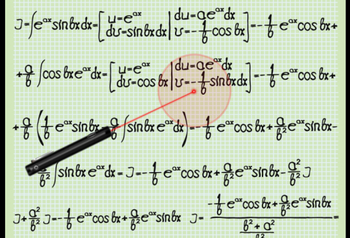 J=∫e^ax sinbxdx=[u=e^ax | du=ae^ax dx; dv=sinbxdx | v=-1/b cos bx]=-1/b e^ax cos bx+
+a/b ∫cos bxe^ax dx=[u=e^ax | du=ae^ax dx; dv=cos bx | v=-1/b sinbxdx]=-1/b e^ax cos bx+
+a/b (1/b e^ax sinbx a/b ∫sinbxe^ax dx)=-1/b e^ax cos bx+a/b² e^ax sinbx-
a²/b² ∫sinbxe^ax dx=J=-1/b e^ax cos bx+a/b² e^ax sinbx-a²/b² J
J+a²/b² J=-1/b e^ax cos bx+a/b² e^ax sinbx J=(-1/b e^ax cos bx+a/b² e^ax sinbx)/((b²+a²)/b²)=